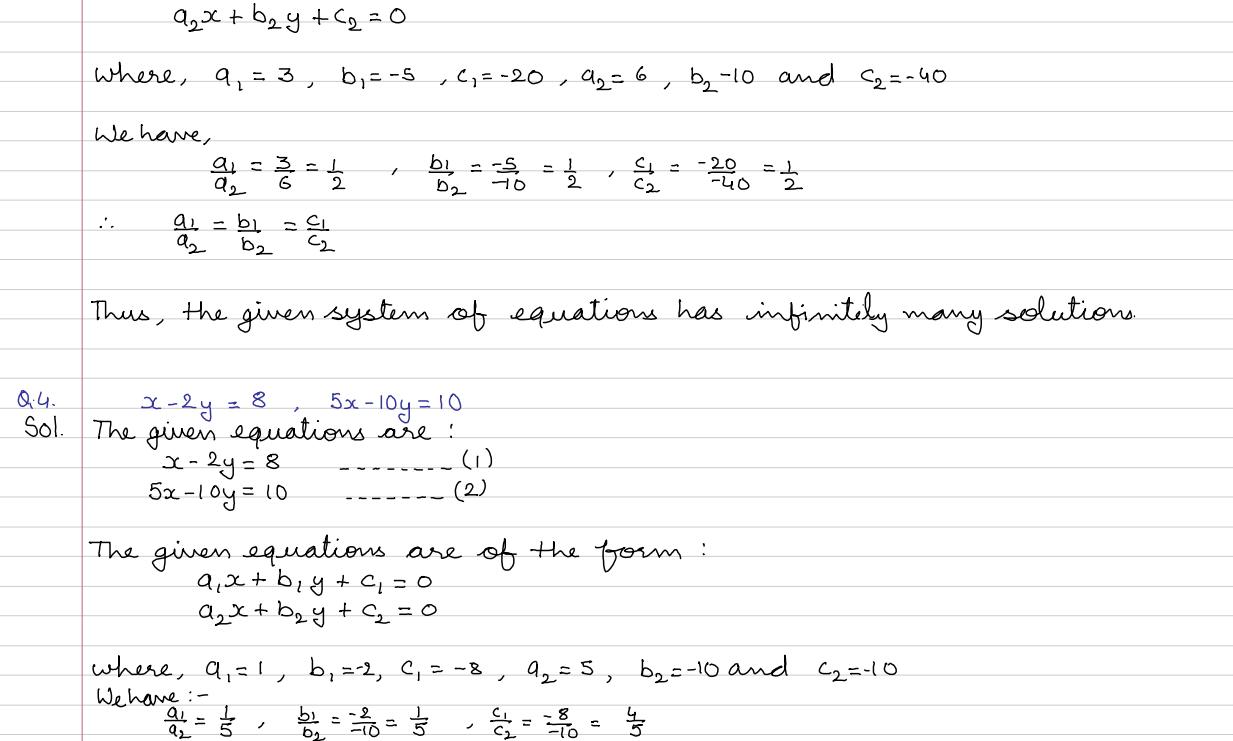 a₂x + b₂y + c₂ = 0
where, a₁ = 3 , b₁ = -5 , c₁ = -20 , a₂ = 6 , b₂ -10 and c₂ = -40
We have,
a₁/a₂ = 3/6 = 1/2 , b₁/b₂ = -5/-10 = 1/2 , c₁/c₂ = -20/-40 = 1/2
∴ a₁/a₂ = b₁/b₂ = c₁/c₂
Thus, the given system of equations has infinitely many solutions.
Q.4. x - 2y = 8 , 5x - 10y = 10
Sol. The given equations are :
x - 2y = 8 -------- (1)
5x - 10y = 10 ------- (2)
The given equations are of the form :
a₁x + b₁y + c₁ = 0
a₂x + b₂y + c₂ = 0
where, a₁ = 1 , b₁ = -2, c₁ = -8 , a₂ = 5 , b₂ = -10 and c₂ = -10
We have :-
a₁/a₂ = 1/5 , b₁/b₂ = -2/-10 = 1/5 , c₁/c₂ = -8/-10 = 4/5